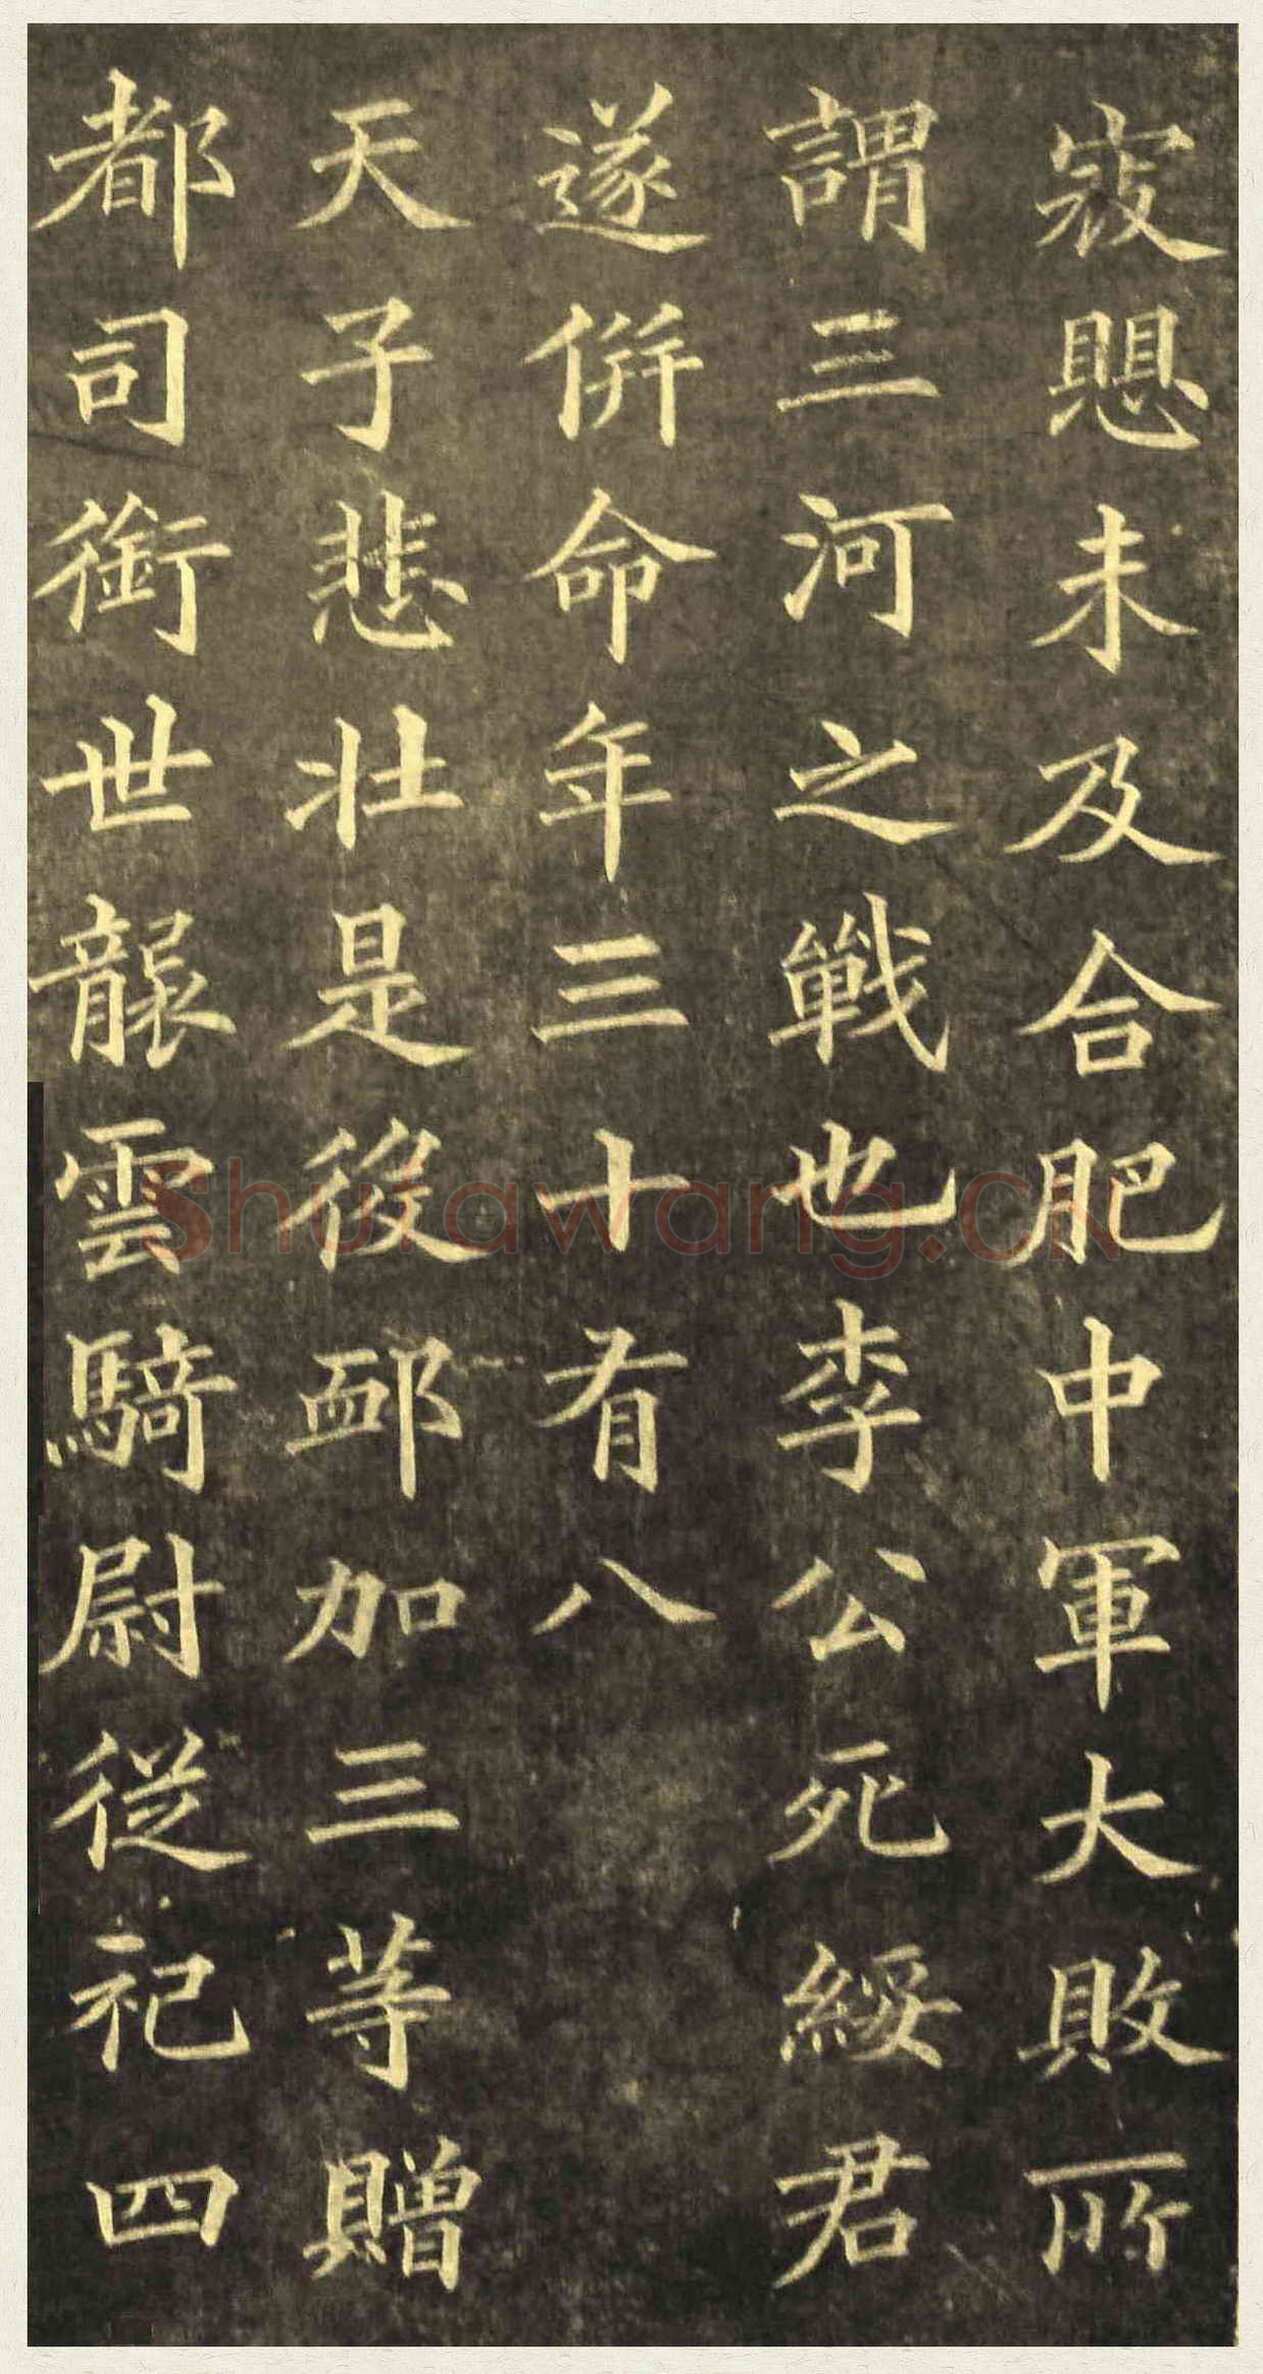 寂愳未及合肥中軍大敗所
謂三河之戰也李公死綏君
遂併命年三十有八
天子悲壯是後卹加三等贈
都司銜世襲雲騎尉從祀四
shufawang.cn